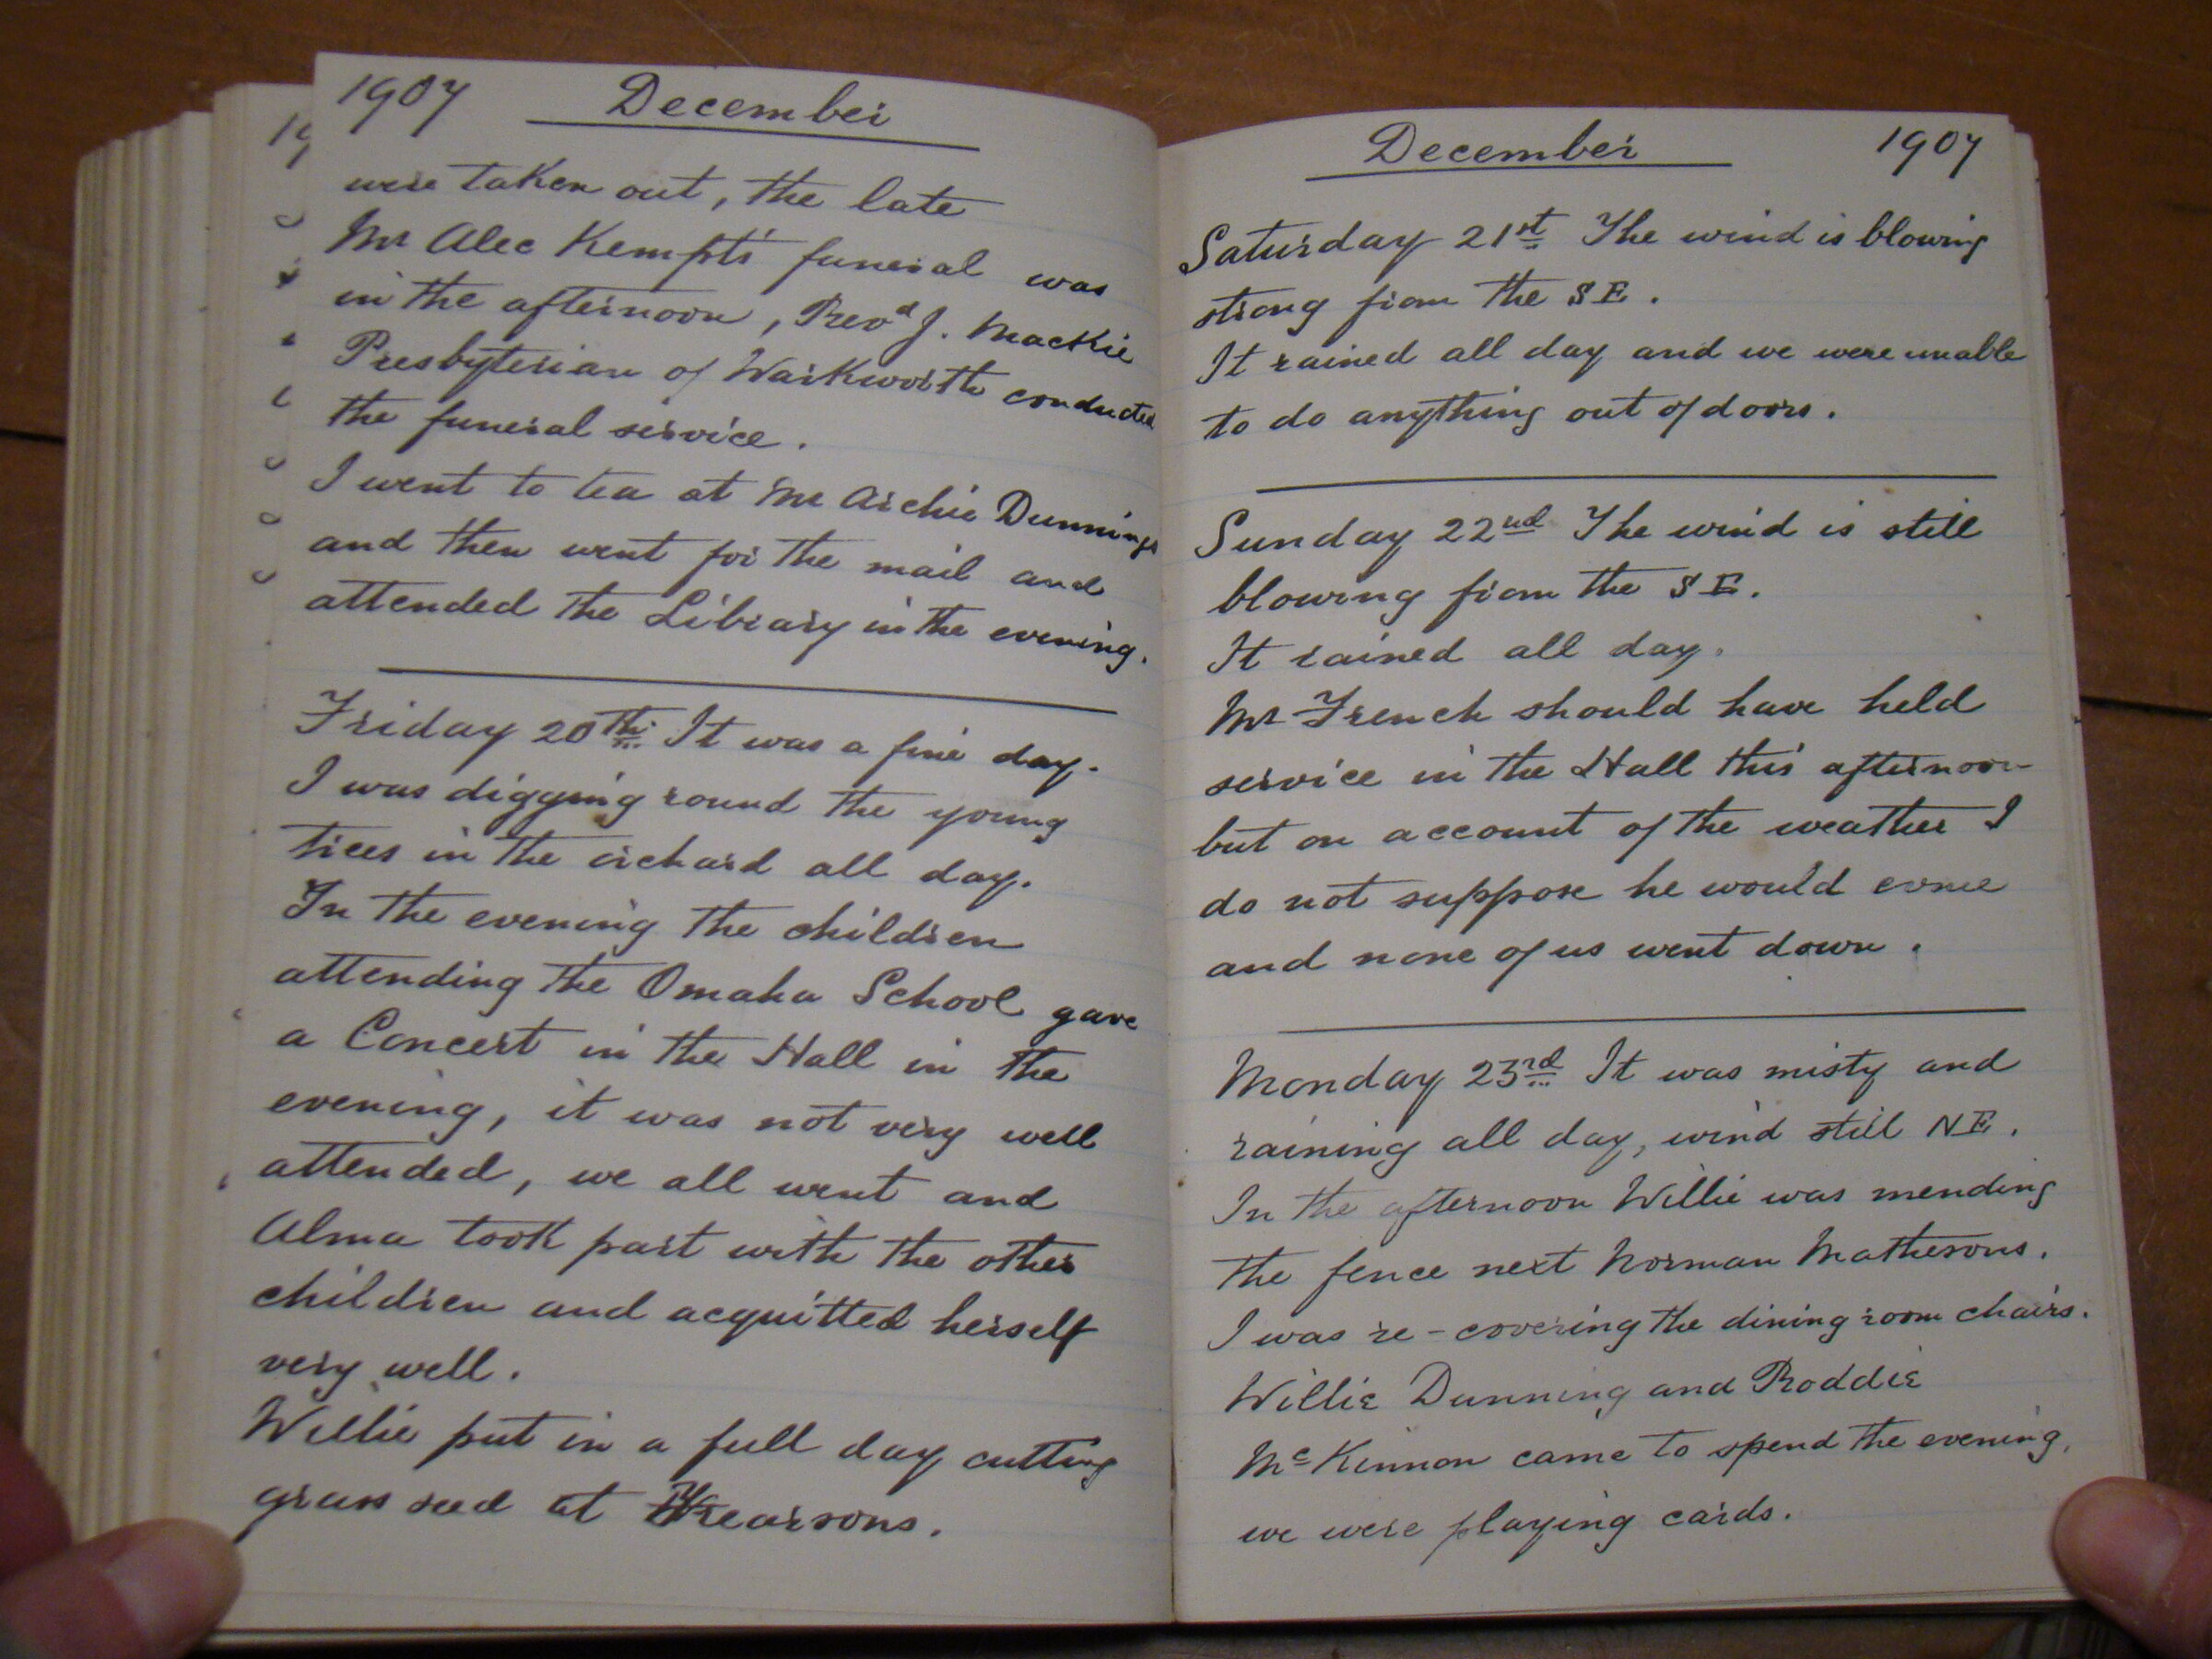 1907 December
were taken out, the late
Mr Alec Kempt's funeral was
in the afternoon, Revd J. Mackie
Presbyterian of Warkworth conducted
the funeral service.
I went to tea at Mr Archie Dunnings
and then went for the mail and
attended the Library in the evening.
Friday 20th It was a fine day.
I was digging round the young
trees in the orchard all day.
In the evening the children
attending the Omaha School gave
a Concert in the Hall in the
evening, it was not very well
attended, we all went and
Alma took part with the other
children and acquitted herself
very well.
Willie put in a full day cutting
grass seed at
December 1907
Saturday 21st The wind is blowing
strong from the SE.
It rained all day and we were unable
to do anything out of doors.
Sunday 22nd The wind is still
blowing from the SE.
It rained all day.
Mr French should have held
service in the Hall this afternoon
but on account of the weather I
do not suppose he would come
and none of us went down.
Monday 23rd It was misty and
raining all day, wind still NE.
In the afternoon Willie was mending
the fence next Norman Mathesons.
I was re-covering the dining room chairs.
Willie Dunning and Roddie
McKinnon came to spend the evening,
we were playing cards.